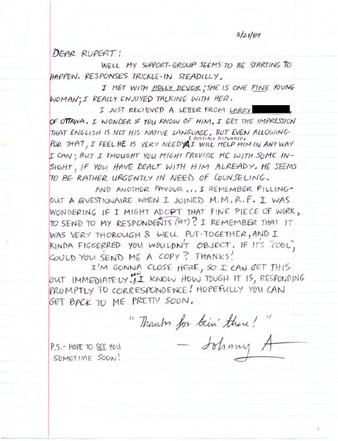 3/21/89
DEAR RUPERT:
WELL MY SUPPORT-GROUP SEEMS TO BE STARTING TO
HAPPEN. RESPONSES TRICKLE-IN STEADILLY.
I MET WITH HOLLY DEVOR; SHE IS ONE FINE YOUNG
WOMAN; I REALLY ENJOYED TALKING WITH HER.
I JUST RECIEVED A LETTER FROM LARRY
OF OTTAWA. I WONDER IF YOU KNOW OF HIM. I GET THE IMPRESSION
THAT ENGLISH IS NOT HIS NATIVE LANGUAGE, BUT EVEN ALLOWING
& POSSIBLY DISTURBED.
FOR THAT, I FEEL HE IS VERY NEEDY I WILL HELP HIM IN ANY WAY
I CAN; BUT I THOUGHT YOU MIGHT PROVIDE ME WITH SOME IN-
SIGHT, IF YOU HAVE DEALT WITH HIM ALREADY. HE SEEMS
TO BE RATHER URGENTLY IN NEED OF COUNSELING.
AND ANOTHER FAVOUR... I REMEMBER FILLING-
OUT A QUESTIONAIRE WHEN I JOINED M.M.R.F. I WAS
WONDERING IF I MIGHT ADOPT THAT FINE PIECE OF WORK,
TO SEND TO MY RESPONDENTS? I REMEMBER THAT IT
WAS VERY THOROUGH & WELL PUT-TOGETHER, AND I
KINDA FIGGERRED YOU WOULDN'T OBJECT. IF IT'S "COOL",
COULD YOU SEND ME A COPY? THANKS!
I'M GONNA CLOSE HERE, SO I CAN GET THIS
OUT IMMEDIATELY. I KNOW HOW TOUGH IT IS, RESPONDING
PROMPTLY TO CORRESPONDENCE! HOPEFULLY YOU CAN
GET BACK TO ME PRETTY SOON.
"Thanks for bein' there!"
— Johnny A
P.S. - HOPE TO SEE YOU
SOMETIME SOON!